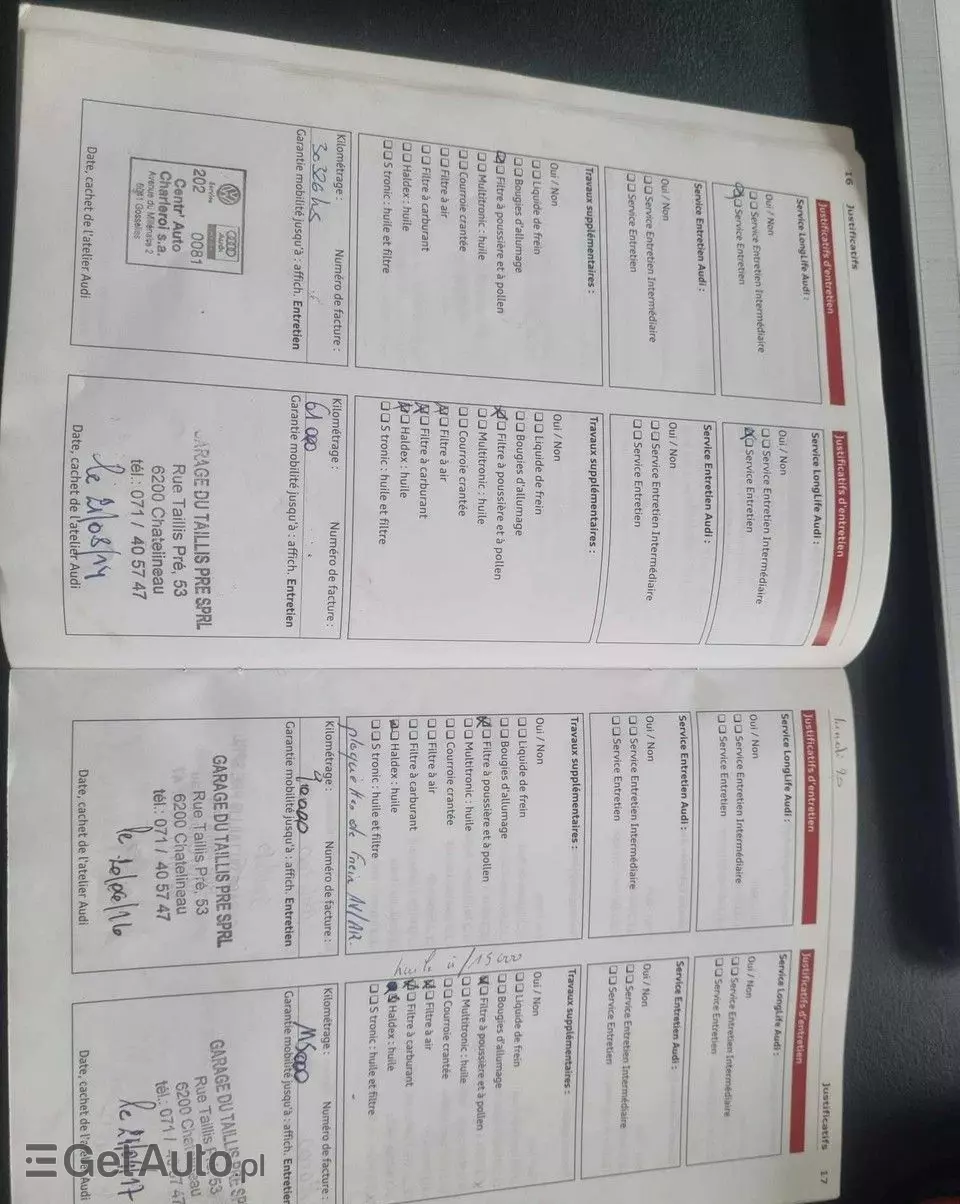 16
Justificatifs
Justificatifs d'entretien
Service LongLife Audi :
Oui / Non
Service Entretien Intermédiaire
Service Entretien
Service Entretien Audi :
Oui / Non
Service Entretien Intermédiaire
Service Entretien
Travaux supplémentaires :
Oui / Non
Liquide de frein
Bougies d'allumage
Filtre à poussière et à pollen
Multitronic : huile
Courroie crantée
Filtre à air
Filtre à carburant
Haldex : huile
S tronic : huile et filtre
Kilométrage :
Numéro de facture :
30326
Garantie mobilité jusqu'à : affich. Entretien
Service
Audi
202 0081
Centr' Auto
Charleroi s.a.
Avenue du Millénaire 2
6041 Gosselies
Date, cachet de l'atelier Audi
Justificatifs d'entretien
Service LongLife Audi :
Oui / Non
Service Entretien Intermédiaire
Service Entretien
Service Entretien Audi :
Oui / Non
Service Entretien Intermédiaire
Service Entretien
Travaux supplémentaires :
Oui / Non
Liquide de frein
Bougies d'allumage
Filtre à poussière et à pollen
Multitronic : huile
Courroie crantée
Filtre à air
Filtre à carburant
Haldex : huile
S tronic : huile et filtre
Kilométrage :
Numéro de facture :
61 000
Garantie mobilité jusqu'à : affich. Entretien
GARAGE DU TAILLIS PRE SPRL
Rue Taillis Pré, 53
6200 Chatelineau
tél.: 071 / 40 57 47
le 21/08/14
Date, cachet de l'atelier Audi
Justificatifs d'entretien
Service LongLife Audi :
Oui / Non
Service Entretien Intermédiaire
Service Entretien
Service Entretien Audi :
Oui / Non
Service Entretien Intermédiaire
Service Entretien
Travaux supplémentaires :
Oui / Non
Liquide de frein
Bougies d'allumage
Filtre à poussière et à pollen
Multitronic : huile
Courroie crantée
Filtre à air
Filtre à carburant
Haldex : huile
S tronic : huile et filtre
de frein AV/AR.
Kilométrage :
Numéro de facture :
Garantie mobilité jusqu'à : affich. Entretien
GARAGE DU TAILLIS PRE SPRL
Rue Taillis Pré, 53
6200 Chatelineau
tél.: 071 / 40 57 47
Date, cachet de l'atelier Audi
Justificatifs
17
Justificatifs d'entretien
Service LongLife Audi :
Oui / Non
Service Entretien Intermédiaire
Service Entretien
Service Entretien Audi :
Oui / Non
Service Entretien Intermédiaire
Service Entretien
Travaux supplémentaires :
Oui / Non
Liquide de frein
Bougies d'allumage
Filtre à poussière et à pollen
Multitronic : huile
Courroie crantée
Filtre à air
Filtre à carburant
Haldex : huile
S tronic : huile et filtre
/15000
Kilométrage :
Numéro de facture :
Garantie mobilité jusqu'à : affich. Entretien
GARAGE DU TAILLIS PRE SP
Rue Taillis
53
6200
tél.: 071 /
47
Date, cachet de l'atelier Audi
GetAuto.pl